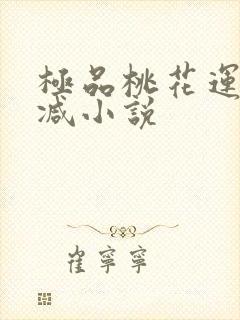 極品桃花運
減小說
崔寧寧